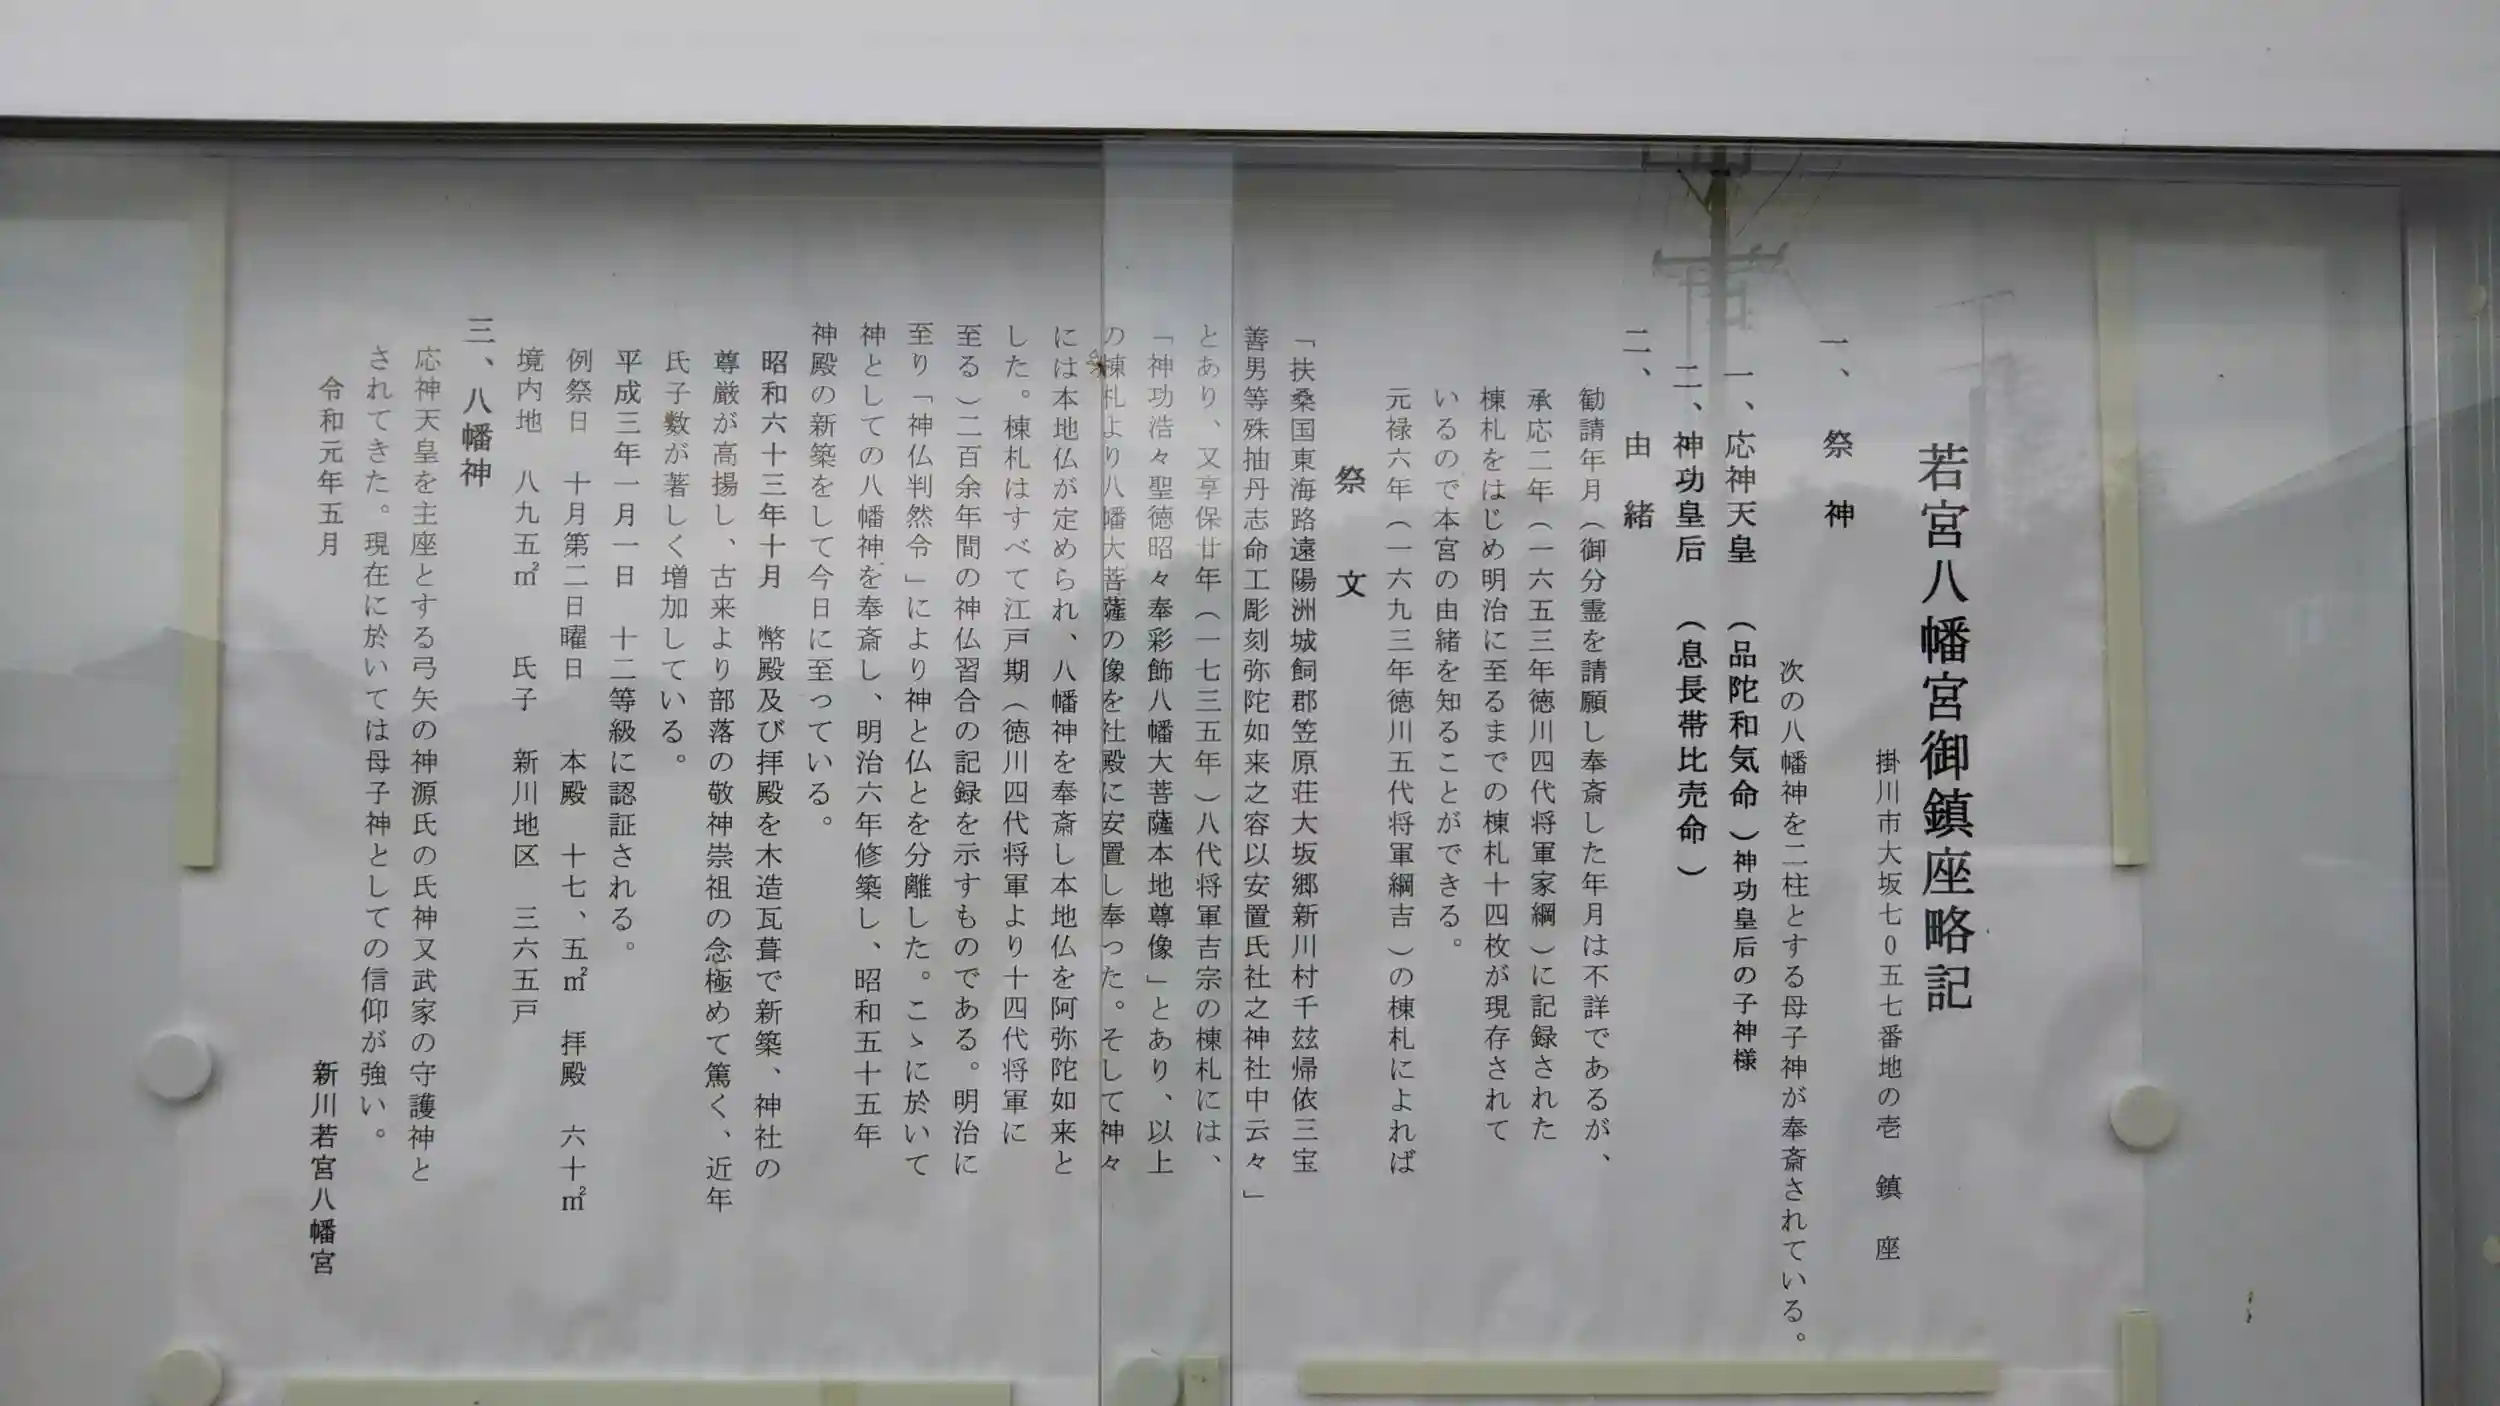 若宮八幡宮御鎮座略記
掛川市大坂七０五七番地の壱　鎮　座
一、祭　神
次の八幡神を二柱とする母子神が奉斎されている。
一、応神天皇　（品陀和気命）神功皇后の子神様
二、神功皇后　（息長帯比売命）
二、由　緒
勧請年月（御分霊を請願し奉斎した年月は不詳であるが、
承応二年（一六五三年徳川四代将軍家綱）に記録された
棟札をはじめ明治に至るまでの棟札十四枚が現存されて
いるので本宮の由緒を知ることができる。
元禄六年（一六九三年徳川五代将軍綱吉）の棟札によれば
祭　文
「扶桑国東海路遠陽洲城飼郡笠原荘大坂郷新川村千玆帰依三宝
善男等殊抽丹志命工彫刻弥陀如来之容以安置氏社之神社中云々」
とあり、又享保廿年（一七三五年）八代将軍吉宗の棟札には、
「神功浩々聖徳昭々奉彩飾八幡大菩薩本地尊像」とあり、以上
の棟札より八幡大菩薩の像を社殿に安置し奉った。そして神々
には本地仏が定められ、八幡神を奉斎し本地仏を阿弥陀如来と
した。棟札はすべて江戸期（徳川四代将軍より十四代将軍に
至る）二百余年間の神仏習合の記録を示すものである。明治に
至り「神仏判然令」により神と仏とを分離した。こゝに於いて
神としての八幡神を奉斎し、明治六年修築し、昭和五十五年
神殿の新築をして今日に至っている。
昭和六十三年十月　幣殿及び拝殿を木造瓦葺で新築、神社の
尊厳が高揚し、古来より部落の敬神崇祖の念極めて篤く、近年
氏子数が著しく増加している。
平成三年一月一日　十二等級に認証される。
例祭日　十月第二日曜日　　本殿　十七、五㎡　拝殿　六十㎡
境内地　八九五㎡　　氏子　新川地区　三六五戸
三、八幡神
応神天皇を主座とする弓矢の神源氏の氏神又武家の守護神と
されてきた。現在に於いては母子神としての信仰が強い。
令和元年五月
新川若宮八幡宮